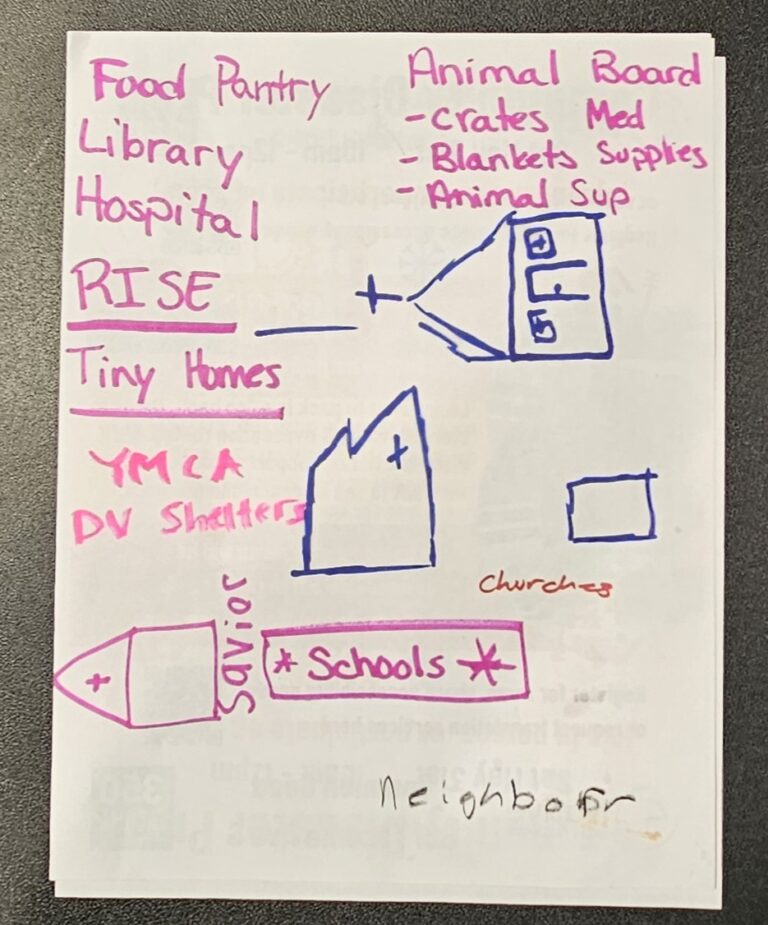 Food Pantry
Library
Hospital
RISE
Tiny Homes
YMCA
DV Shelters
Animal Board
- Crates Med
- Blankets Supplies
- Animal Sup
Churches
Savior
* Schools *